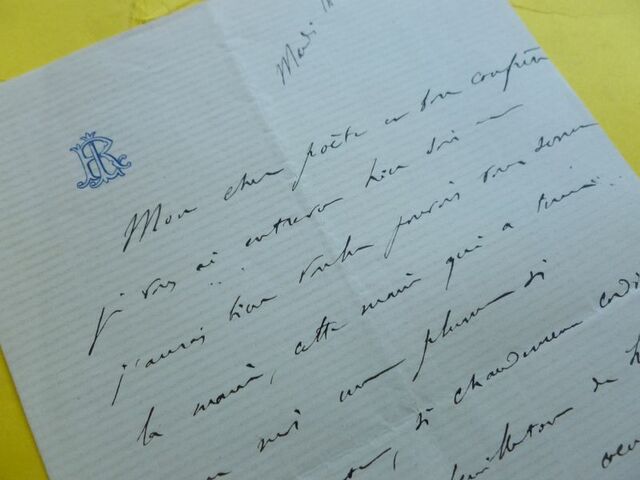 Mardi
R
Mon cher poète et bon confrère
je vous ai entrevu hier soir et
j'aurais bien voulu pouvoir vous serrer
la main, cette main qui a
mis une plume si
si chaudement
feuilleton de